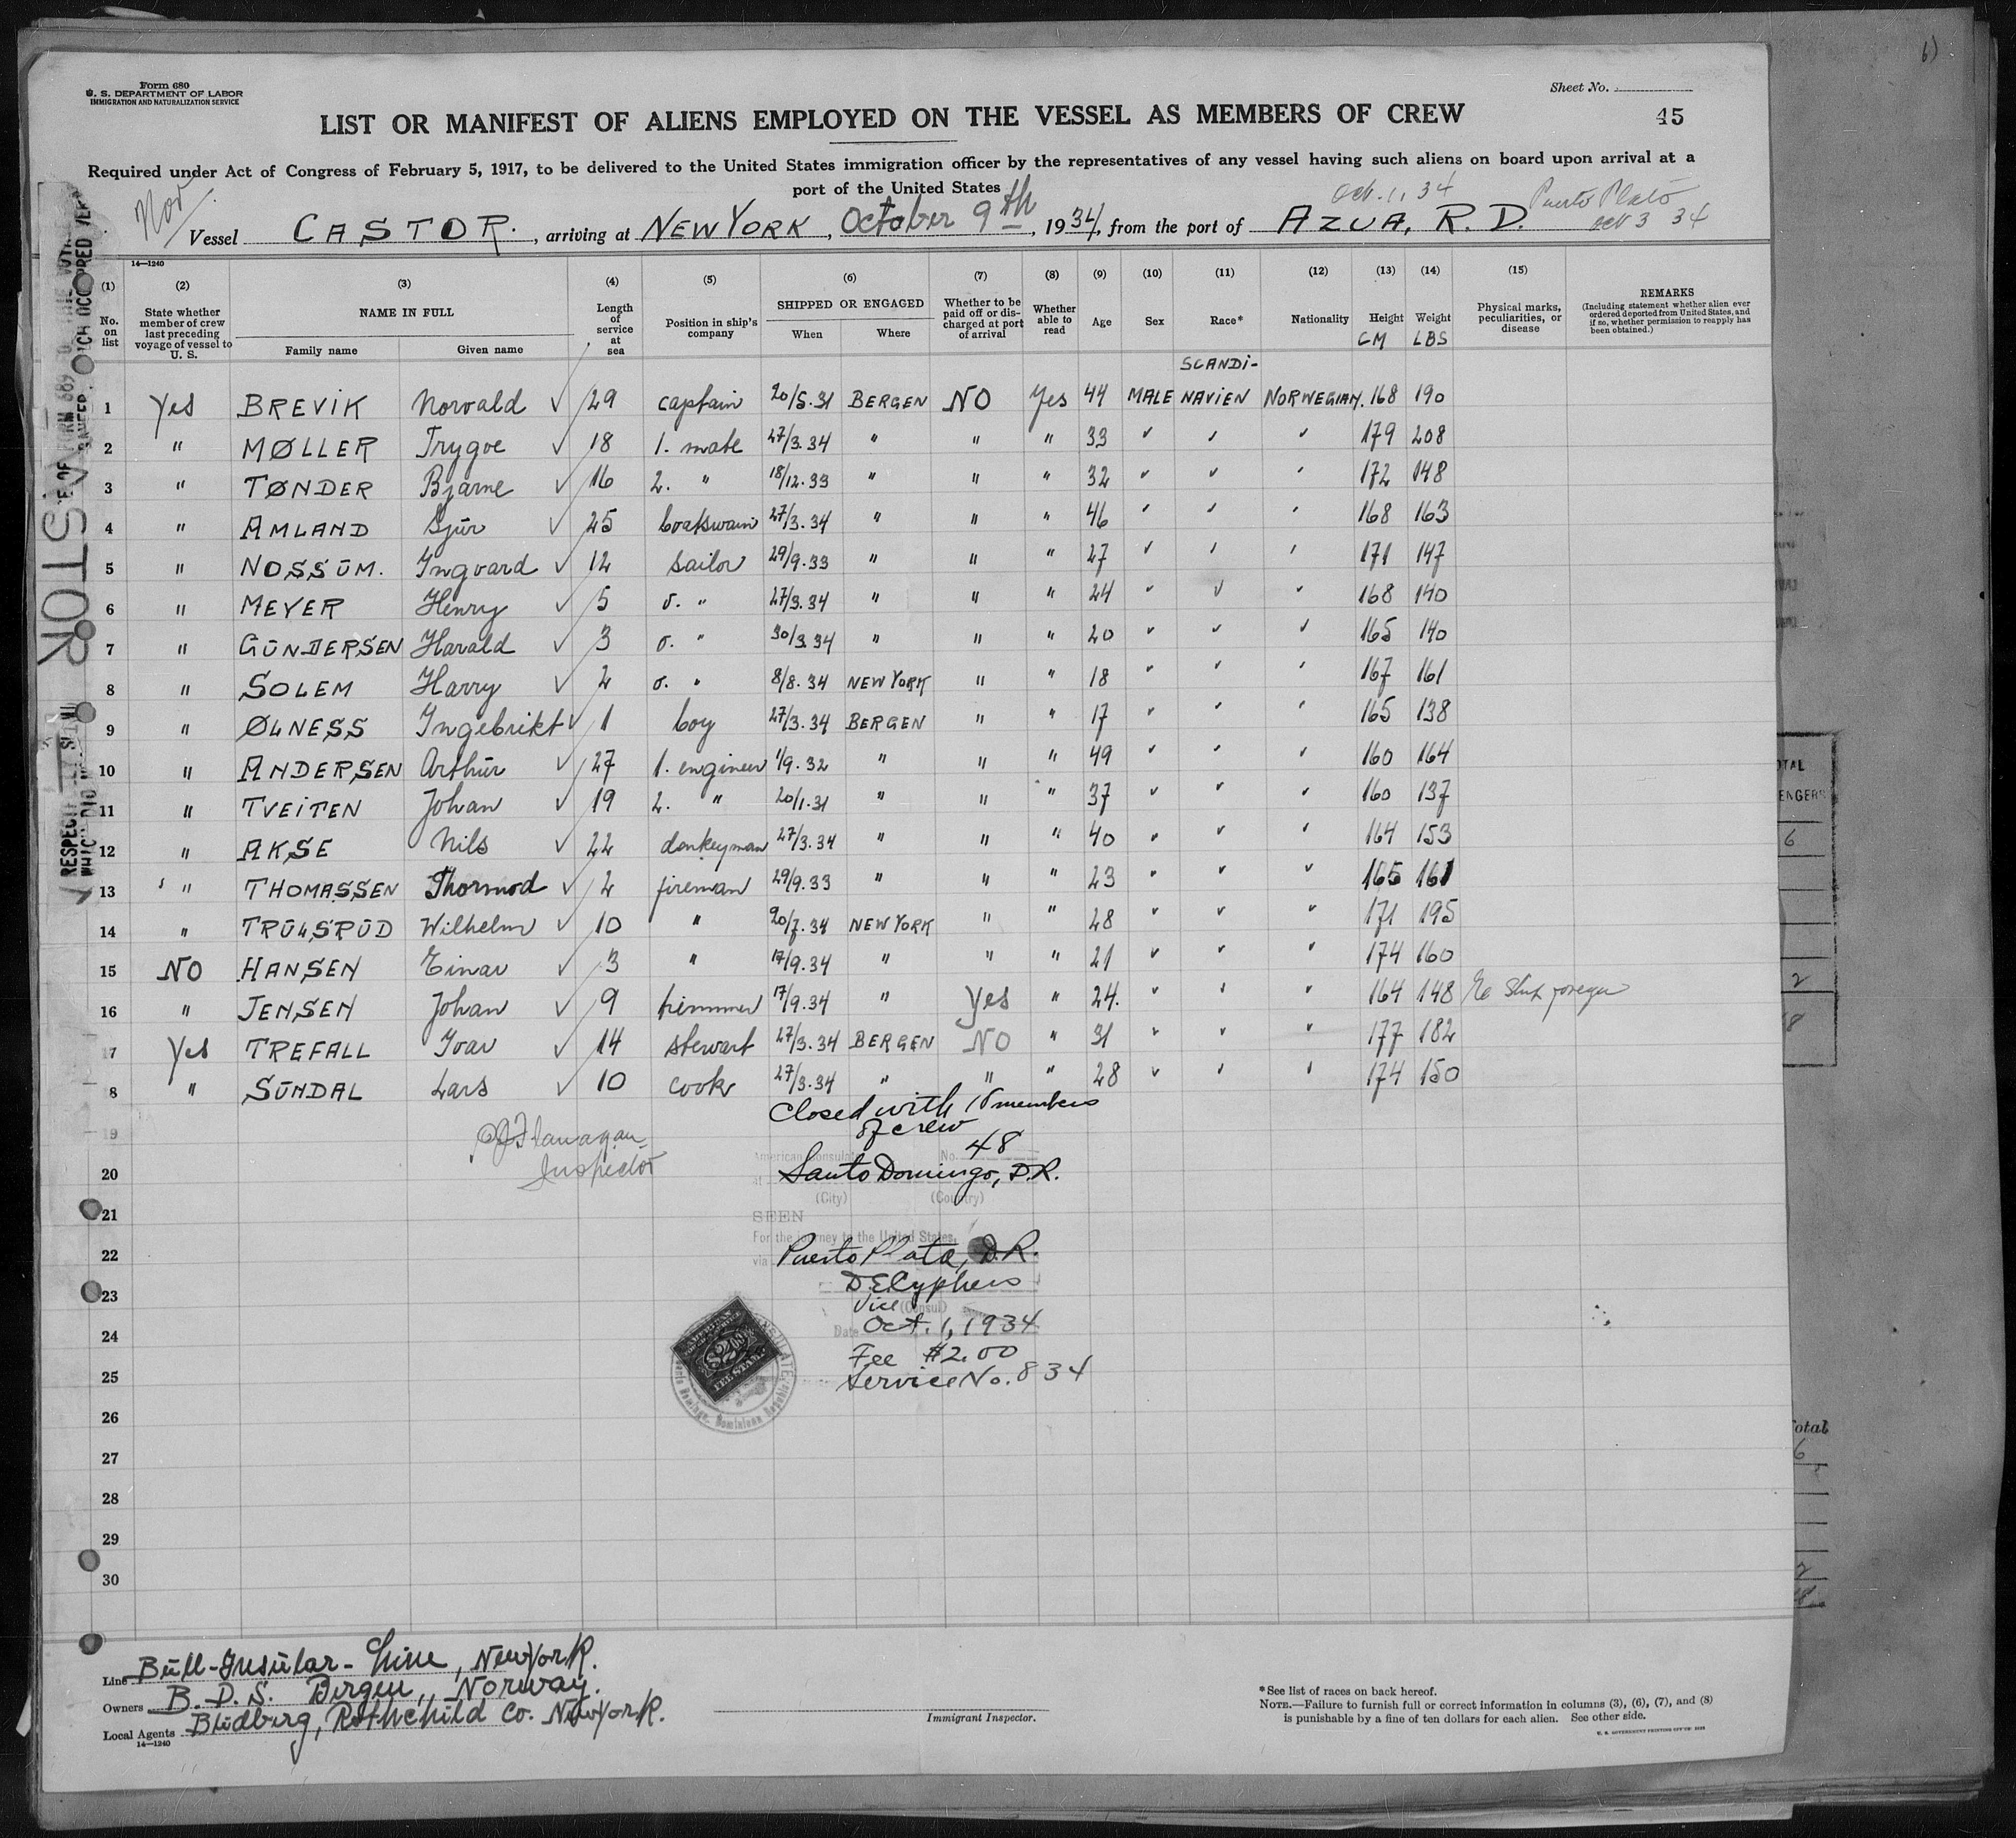 Form 680
U. S. DEPARTMENT OF LABOR
IMMIGRATION AND NATURALIZATION SERVICE
Sheet No.
45
LIST OR MANIFEST OF ALIENS EMPLOYED ON THE VESSEL AS MEMBERS OF CREW
Required under Act of Congress of February 5, 1917, to be delivered to the United States immigration officer by the representatives of any vessel having such aliens on board upon arrival at a
port of the United States
Nor
Oct. 1, 34 Puerto Plato
Oct 3 34
Vessel CASTOR. , arriving at NEW YORK , October 9th , 1934, from the port of AZUA, R. D.
14—1240
(1) (2) (3) (4) (5) (6) (7) (8) (9) (10) (11) (12) (13) (14) (15)
No. on list | State whether member of crew last preceding voyage of vessel to U. S. | NAME IN FULL | Family name | Given name | Length of service at sea | Position in ship's company | SHIPPED OR ENGAGED | When | Where | Whether to be paid off or discharged at port of arrival | Whether able to read | Age | Sex | Race* | Nationality | Height CM | Weight LBS | Physical marks, peculiarities, or disease | REMARKS (Including statement whether alien ever ordered deported from United States, and if so, whether permission to reapply has been obtained.)
SCANDI-
1 Yes BREVIK Norvald ✓ 29 captain 20/5.31 BERGEN NO Yes 44 MALE NAVIEN NORWEGIAN. 168 190
2 " MØLLER Trygve ✓ 18 1. mate 27/3.34 " " " 33 " " " 179 208
3 " TØNDER Bjarne ✓ 16 2. " 18/12.33 " " " 32 " " " 172 148
4 " AMLAND Sjur ✓ 25 boatswain 27/3.34 " " " 46 " " " 168 163
5 " NOSSŪM. Ingvard ✓ 12 sailor 29/9.33 " " " 27 " " " 171 147
6 " MEYER Henry ✓ 5 o. " 27/3.34 " " " 24 " " " 168 140
7 " GŪNDERSEN Harald ✓ 3 o. " 30/3.34 " " " 20 " " " 165 140
8 " SOLEM Harry ✓ 2 o. " 8/8.34 NEW YORK " " 18 " " " 167 161
9 " ØLNESS Ingebrikt ✓ 1 boy 27/3.34 BERGEN " " 17 " " " 165 138
10 " ANDERSEN Arthūr ✓ 27 1. engineer 1/9.32 " " " 49 " " " 160 164
11 " TVEITEN Johan ✓ 19 2. " 20/1.31 " " " 37 " " " 160 137
12 " AKSE Nils ✓ 22 donkeyman 27/3.34 " " " 40 " " " 164 153
13 " THOMASSEN Thormod ✓ 2 fireman 29/9.33 " " " 23 " " " 165 161
14 " TRŪLSRŪD Wilhelm ✓ 10 " 20/7.34 NEW YORK " " 28 " " " 171 195
15 NO HANSEN Einar ✓ 3 " 17/9.34 " " " 21 " " " 174 160
16 " JENSEN Johan ✓ 9 trimmer 17/9.34 " Yes " 24. " " " 164 148
17 Yes TREFALL Ivar ✓ 14 stewart 27/3.34 BERGEN NO " 31 " " " 177 182
8 " SŪNDAL Lars ✓ 10 cook 27/3.34 " " " 28 " " " 174 150
Closed with 18 members
of crew
19
Flanagan
Inspector
American Consulate No. 48
20
at Santo Domingo, D.R.
(City) (Country)
21
SEEN
For the journey to the United States,
22
via Puerto Plata, D.R.
D E Cyphers
23
Vice (Consul)
24
Date Oct. 1, 1934
Fee $2.00
25
Service No. 834
$2.00
FEE STAMP
Santo Domingo, Dominican Republic
26
27
28
29
30
Line Būll-Insūlar-Line, New York.
Owners B. D. S. Bergen, Norway.
Local Agents Bludberg, Rothchild Co. New York.
14—1240
Immigrant Inspector.
*See list of races on back hereof.
NOTE.—Failure to furnish full or correct information in columns (3), (6), (7), and (8)
is punishable by a fine of ten dollars for each alien. See other side.
U. S. GOVERNMENT PRINTING OFFICE